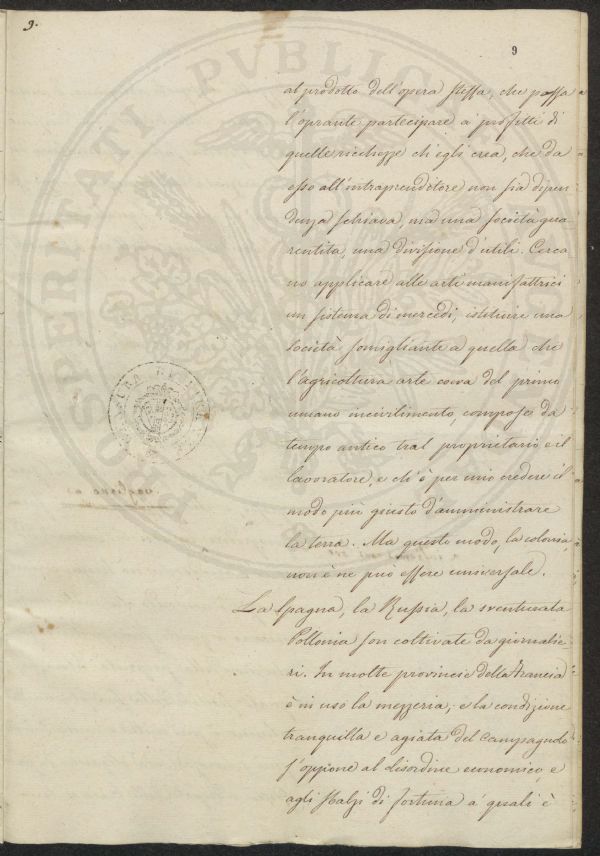 9.
9
al prodotto dell'opera stessa, che possa
l'oprante partecipare a' profitti di
quelle ricchezze ch'egli crea, che da
esso all'intraprenditore non sia dipen
denza schiava, ma una società gua
rentita, una divisione d'utili. Cerca
no applicare alle arti manifattrici
un sistema di mercedi, istituire una
società somigliante a quella che
l'agricoltura arte coeva del primo
umano incivilimento, compose da
tempo antico tral proprietario e il
lavoratore, e ch'è per mio credere il
modo più giusto d'amministrare
la terra. Ma questo modo, la colonia,
non è ne può essere universale.
La Spagna, la Russia, la sventurata
Pollonia son coltivate da giornalie
ri. In molte provincie della Francia
è in uso la mezzeria, e la condizione
tranquilla e agiata del campagnolo
s'oppone al disordine economico, e
agli sbalzi di fortuna a' quali è
PROSPERITATI PUBLIC